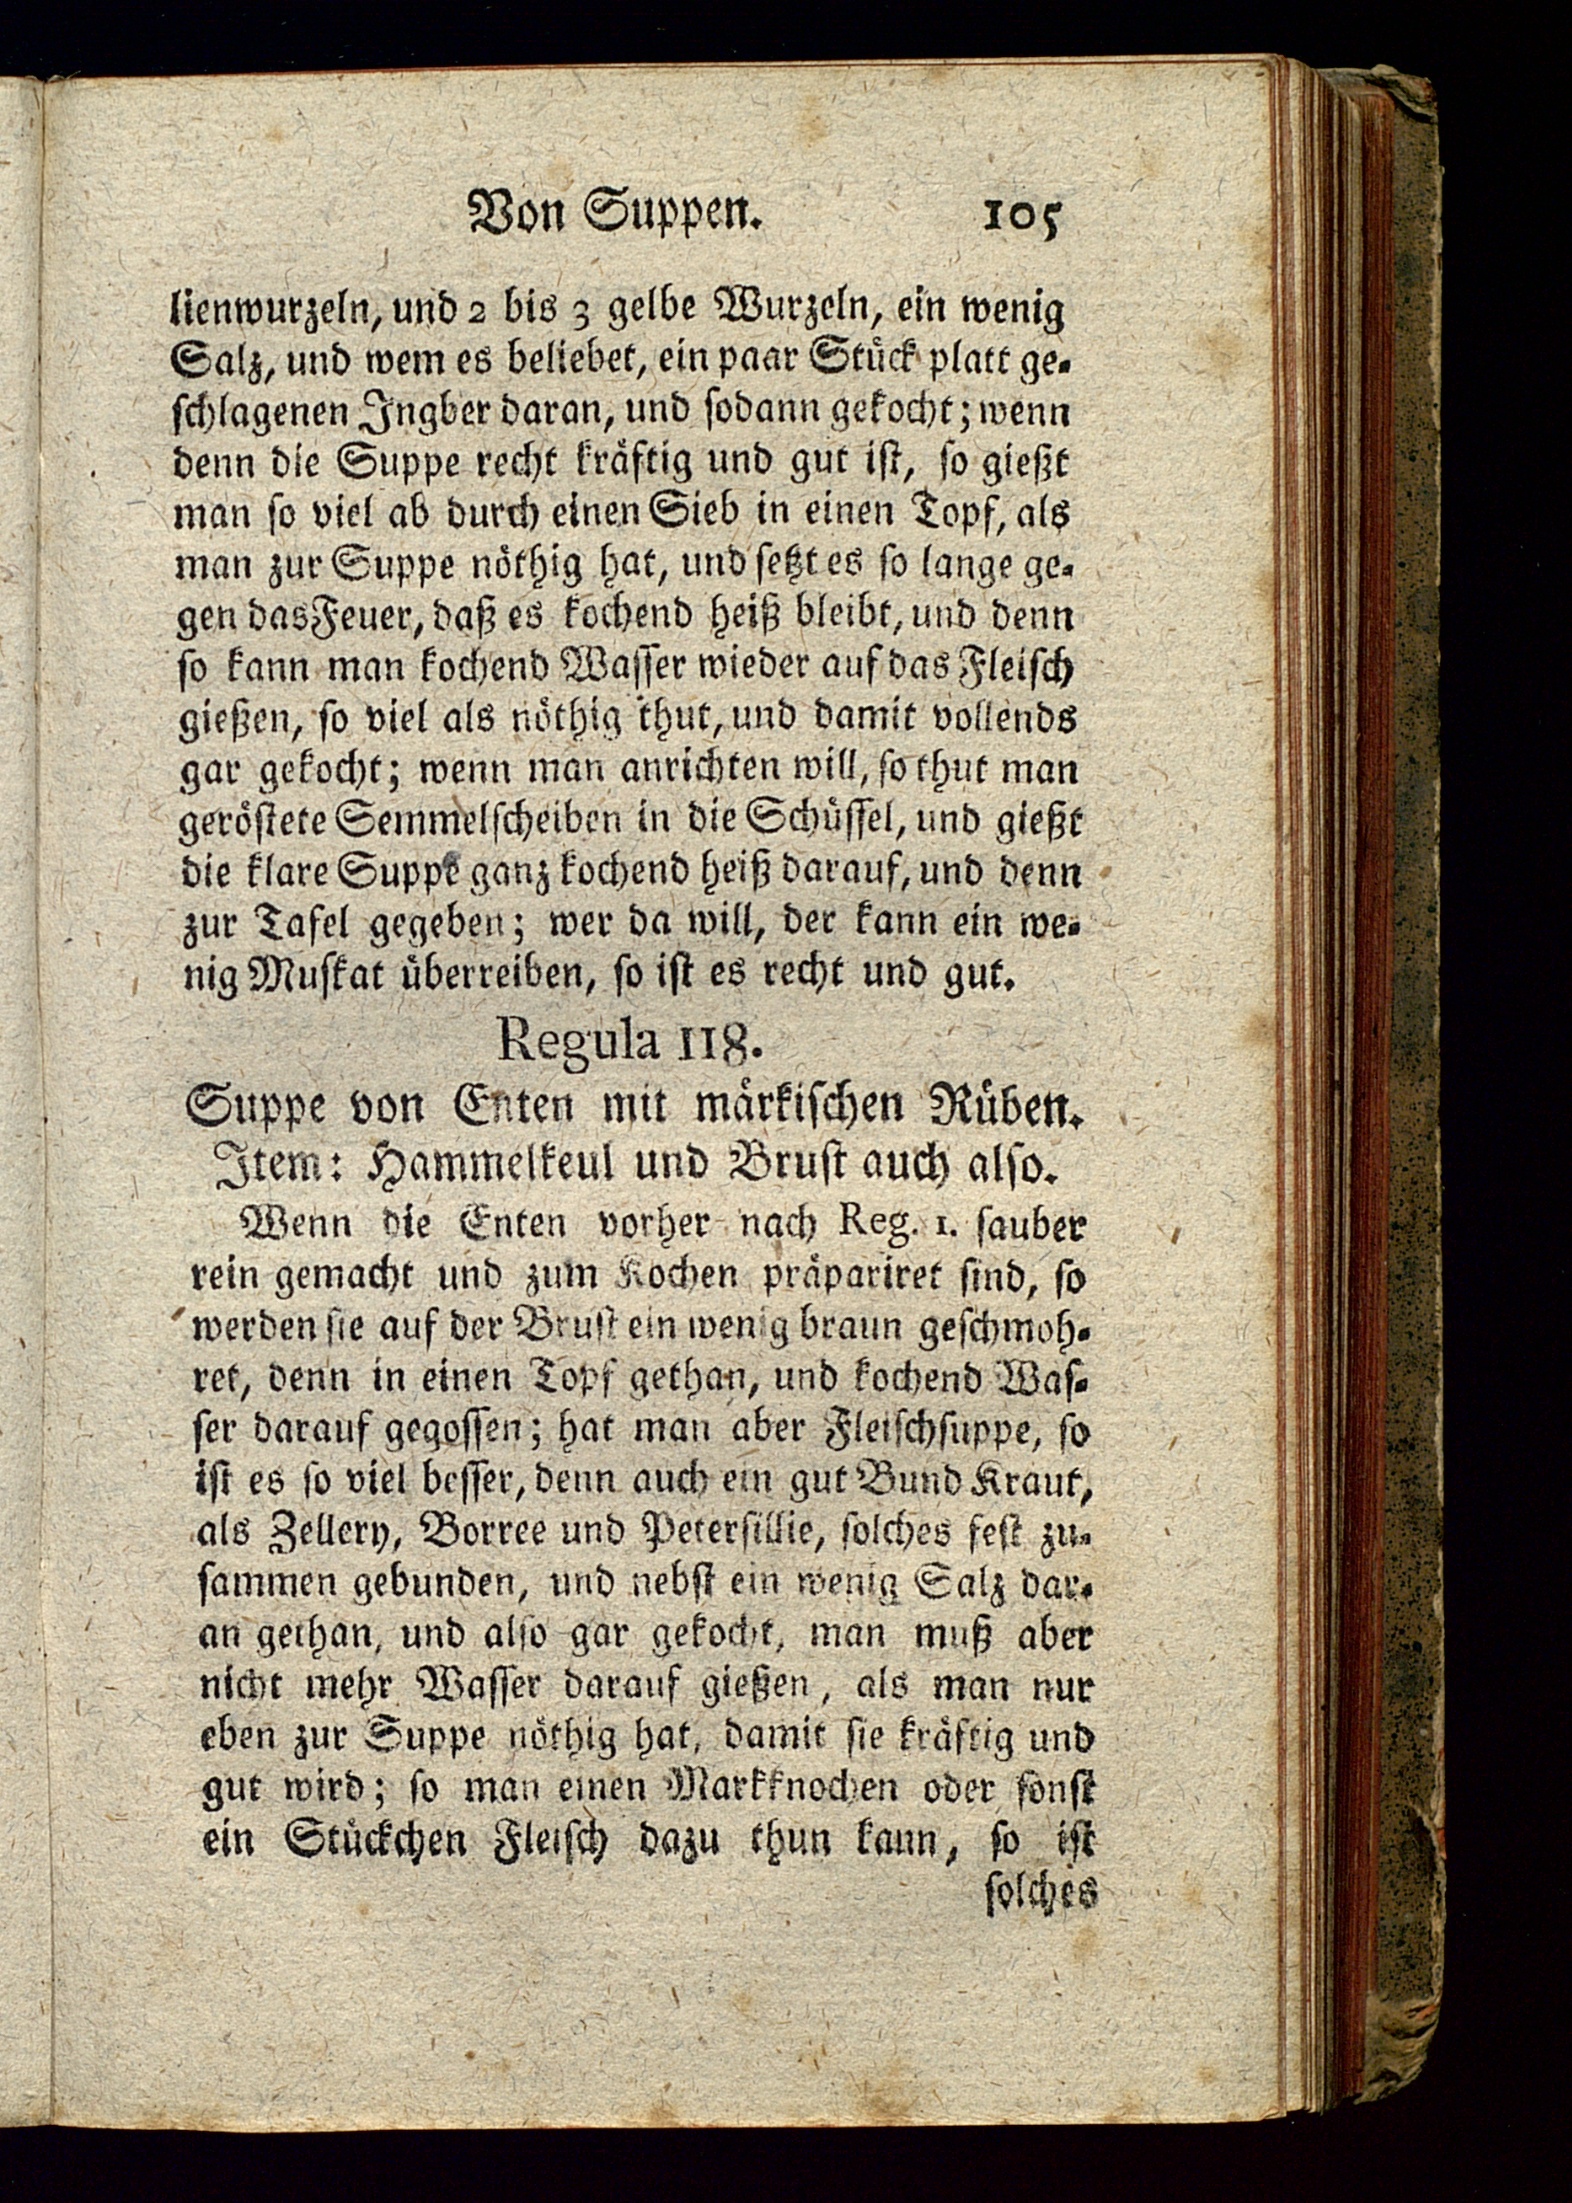 Von Suppen. 105
lienwurzeln, und 2 bis 3 gelbe Wurzeln, ein wenig
Salz, und wem es beliebet, ein paar Stück platt ge-
schlagenen Ingber daran, und sodann gekocht; wenn
denn die Suppe recht kräftig und gut ist, so gießt
man so viel ab durch einen Sieb in einen Topf, als
man zur Suppe nöthig hat, und setzt es so lange ge-
gen das Feuer, daß es kochend heiß bleibt, und denn
so kann man kochend Wasser wieder auf das Fleisch
gießen, so viel als nöthig thut, und damit vollends
gar gekocht; wenn man anrichten will, so thut man
geröstete Semmelscheiben in die Schüssel, und gießt
die klare Suppe ganz kochend heiß darauf, und denn
zur Tafel gegeben; wer da will, der kann ein we-
nig Muskat überreiben, so ist es recht und gut.
Regula 118.
Suppe von Enten mit märkischen Rüben.
Item: Hammelkeul und Brust auch also.
Wenn die Enten vorher nach Reg. 1. sauber
rein gemacht und zum Kochen präpariret sind, so
werden sie auf der Brust ein wenig braun geschmoh-
ret, denn in einen Topf gethan, und kochend Was-
ser darauf gegossen; hat man aber Fleischsuppe, so
ist es so viel besser, denn auch ein gut Bund Kraut,
als Zellery, Borree und Petersillie, solches fest zu-
sammen gebunden, und nebst ein wenig Salz dar-
an gethan, und also gar gekocht, man muß aber
nicht mehr Wasser darauf gießen, als man nur
eben zur Suppe nöthig hat, damit sie kräftig und
gut wird; so man einen Markknochen oder sonst
ein Stückchen Fleisch dazu thun kann, so ist
solches